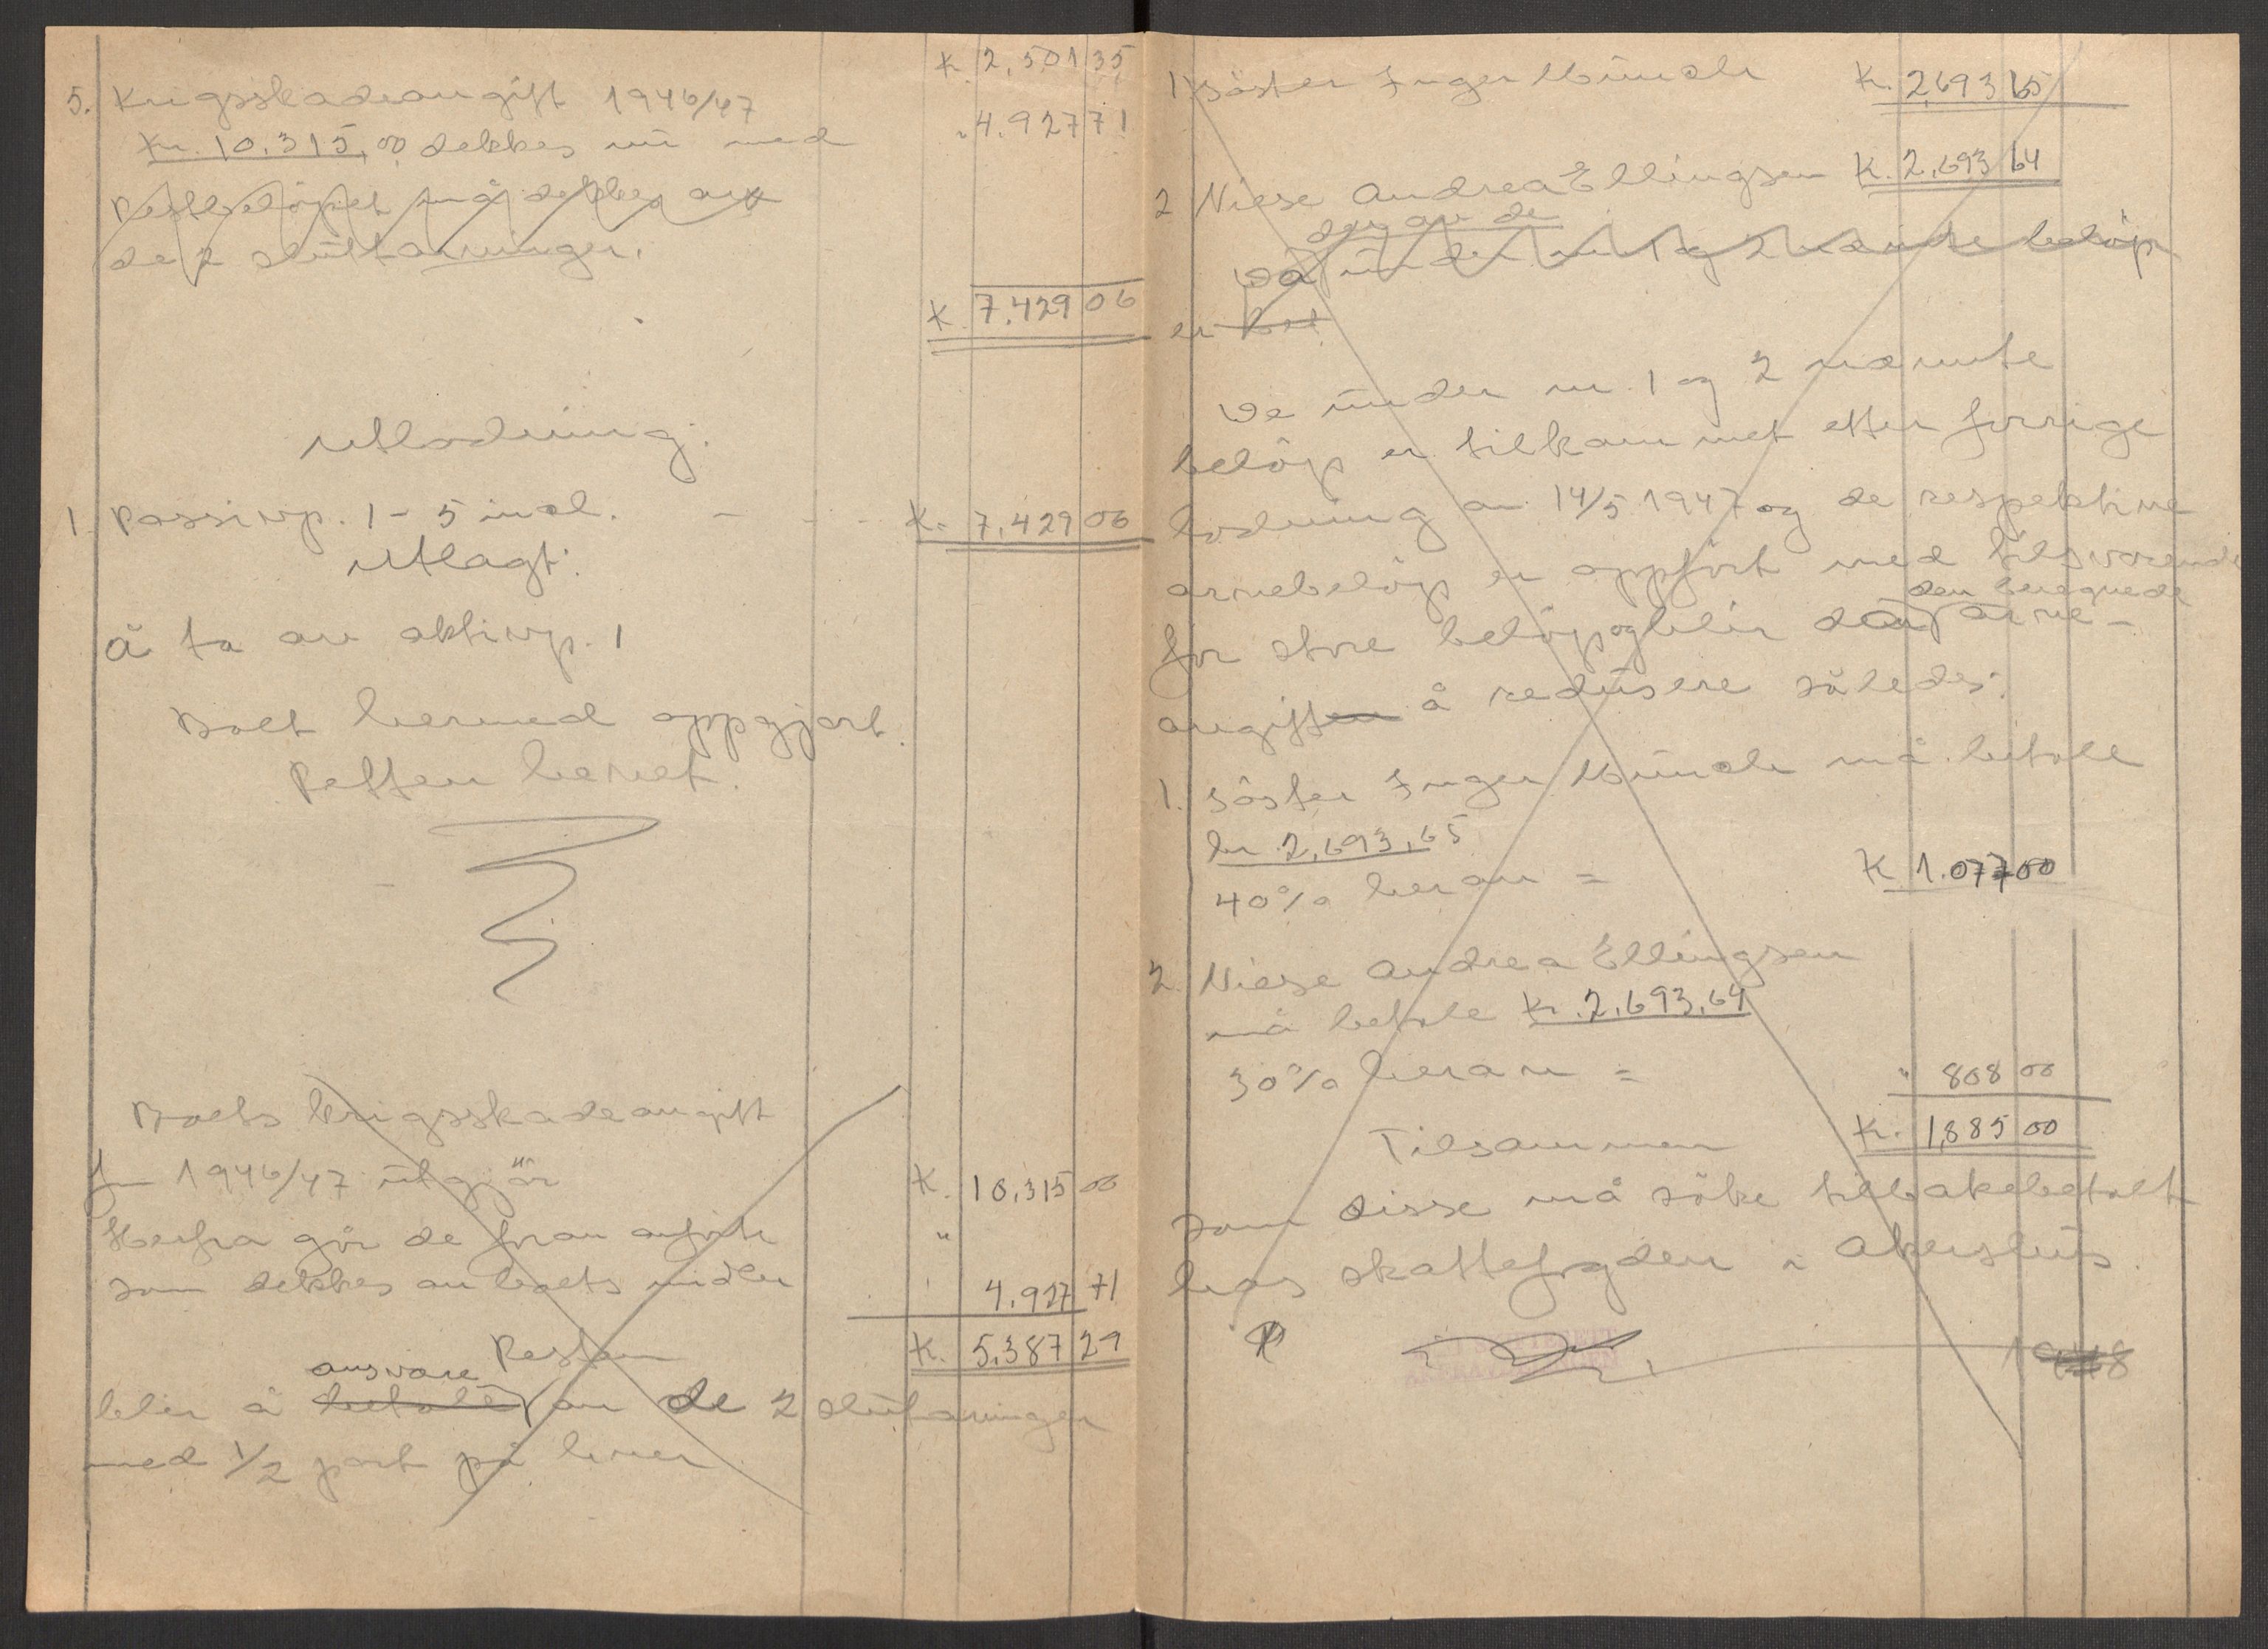 K. 2,501 35
5. Krigsskadeavgift 1946/47
Kr. 10.315,00 dekkes nu med " 4.927 71
Restbelöpet må dekkes av
de 2 slutt arvinger.
K. 7.429 06
Utlodning:
1. Passivp. 1 - 5 incl. - - - K. 7.429 06
Utlagt:
Å ta av aktivp. 1
Boet hermed oppgjort.
Retten hevet.
Boets krigsskadeavgift
for 1946/47 utgjör K. 10,315 00
Herfra går de foran anförte "
som dekkes av boets midler " 4.927 71
Resten K. 5.387 29
ansvare
blir å betale av de 2 slutarvinger
med 1/2 part på hver
1) Söster Inger Munch K. 2,693 65
2 Niese Andrea Ellingsen K. 2,693 64
den av de
Da under nr 1 og 2 nævnte belöp
er bet
De under nr. 1 og 2 nævnte
belöp er tilkommet etter forrige
lodning av 14/5 1947 og de respektive
arvebelöp er oppfört med tilsvarende
den beregnede
for store belöp og blir den arve-
avgiften å redusere således:
1. Söster Inger Munch må betale
kr 2,693,65
40% herav = K 1.077 00
2. Niese Andrea Ellingsen
må betale Kr. 2,693,64
30% herav = " 808 00
Tilsammen K. 1,885 00
som disse må söke tilbakebetalt
hos skattefogden i Akershus.
1948